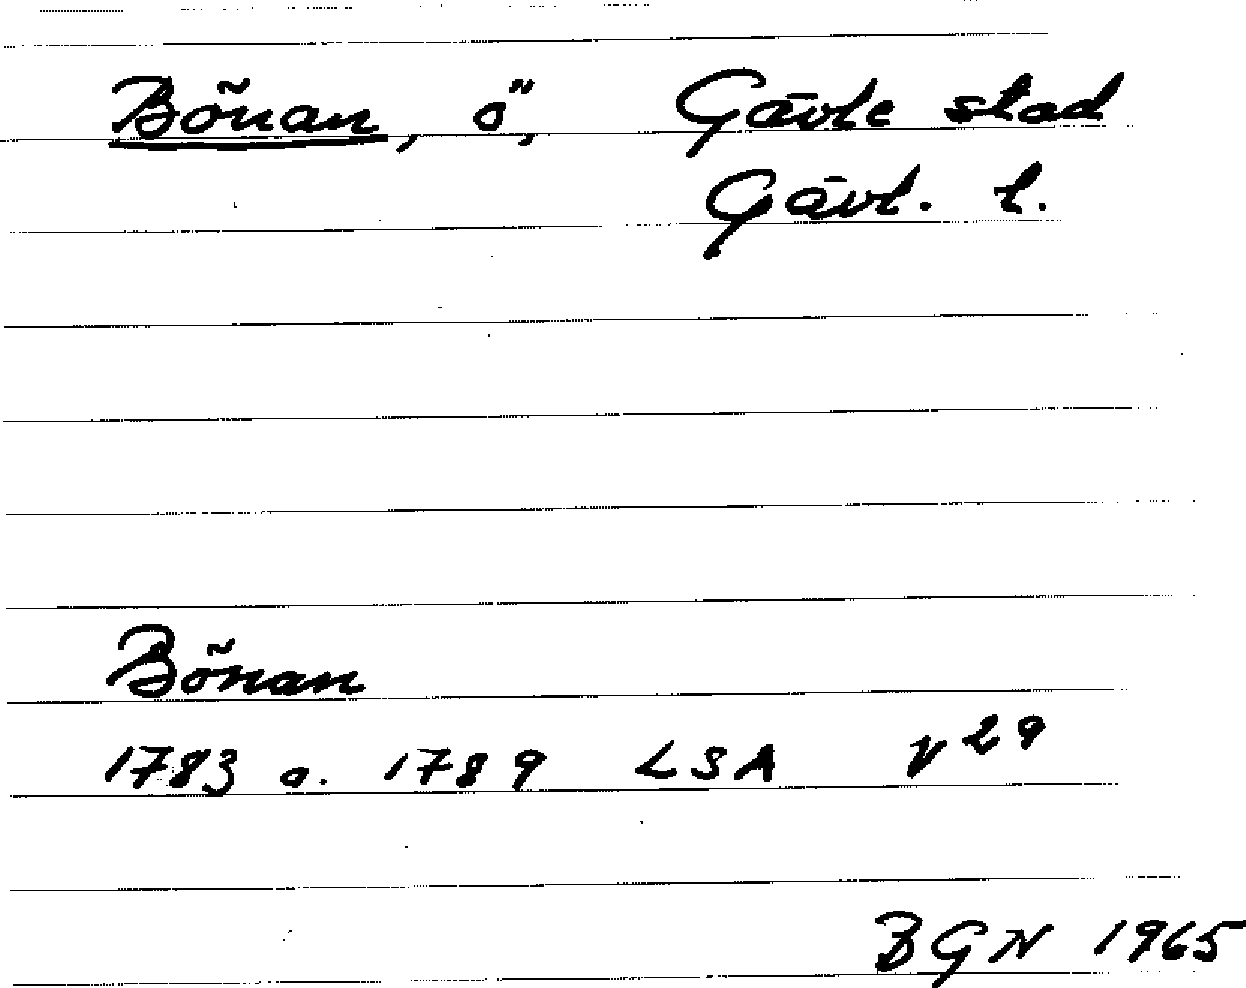 Bönan, ö, Gävle stad
Gävl. l.
Bönan
1783 o. 1789 LSA V²⁹
BGN 1965